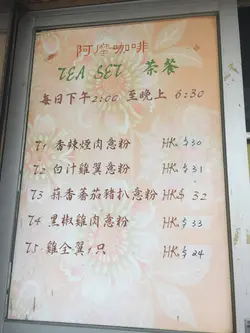 阿摩咖啡
TEA SET 茶餐
每日下午2:00 至晚上 6:30
T1 香辣煙肉意粉 HK$30
T2 白汁雞翼意粉 HK$31
T3 蒜香蕃茄豬扒意粉 HK$32
T4 黑椒雞肉意粉 HK$33
T5 雞全翼1只 HK$24